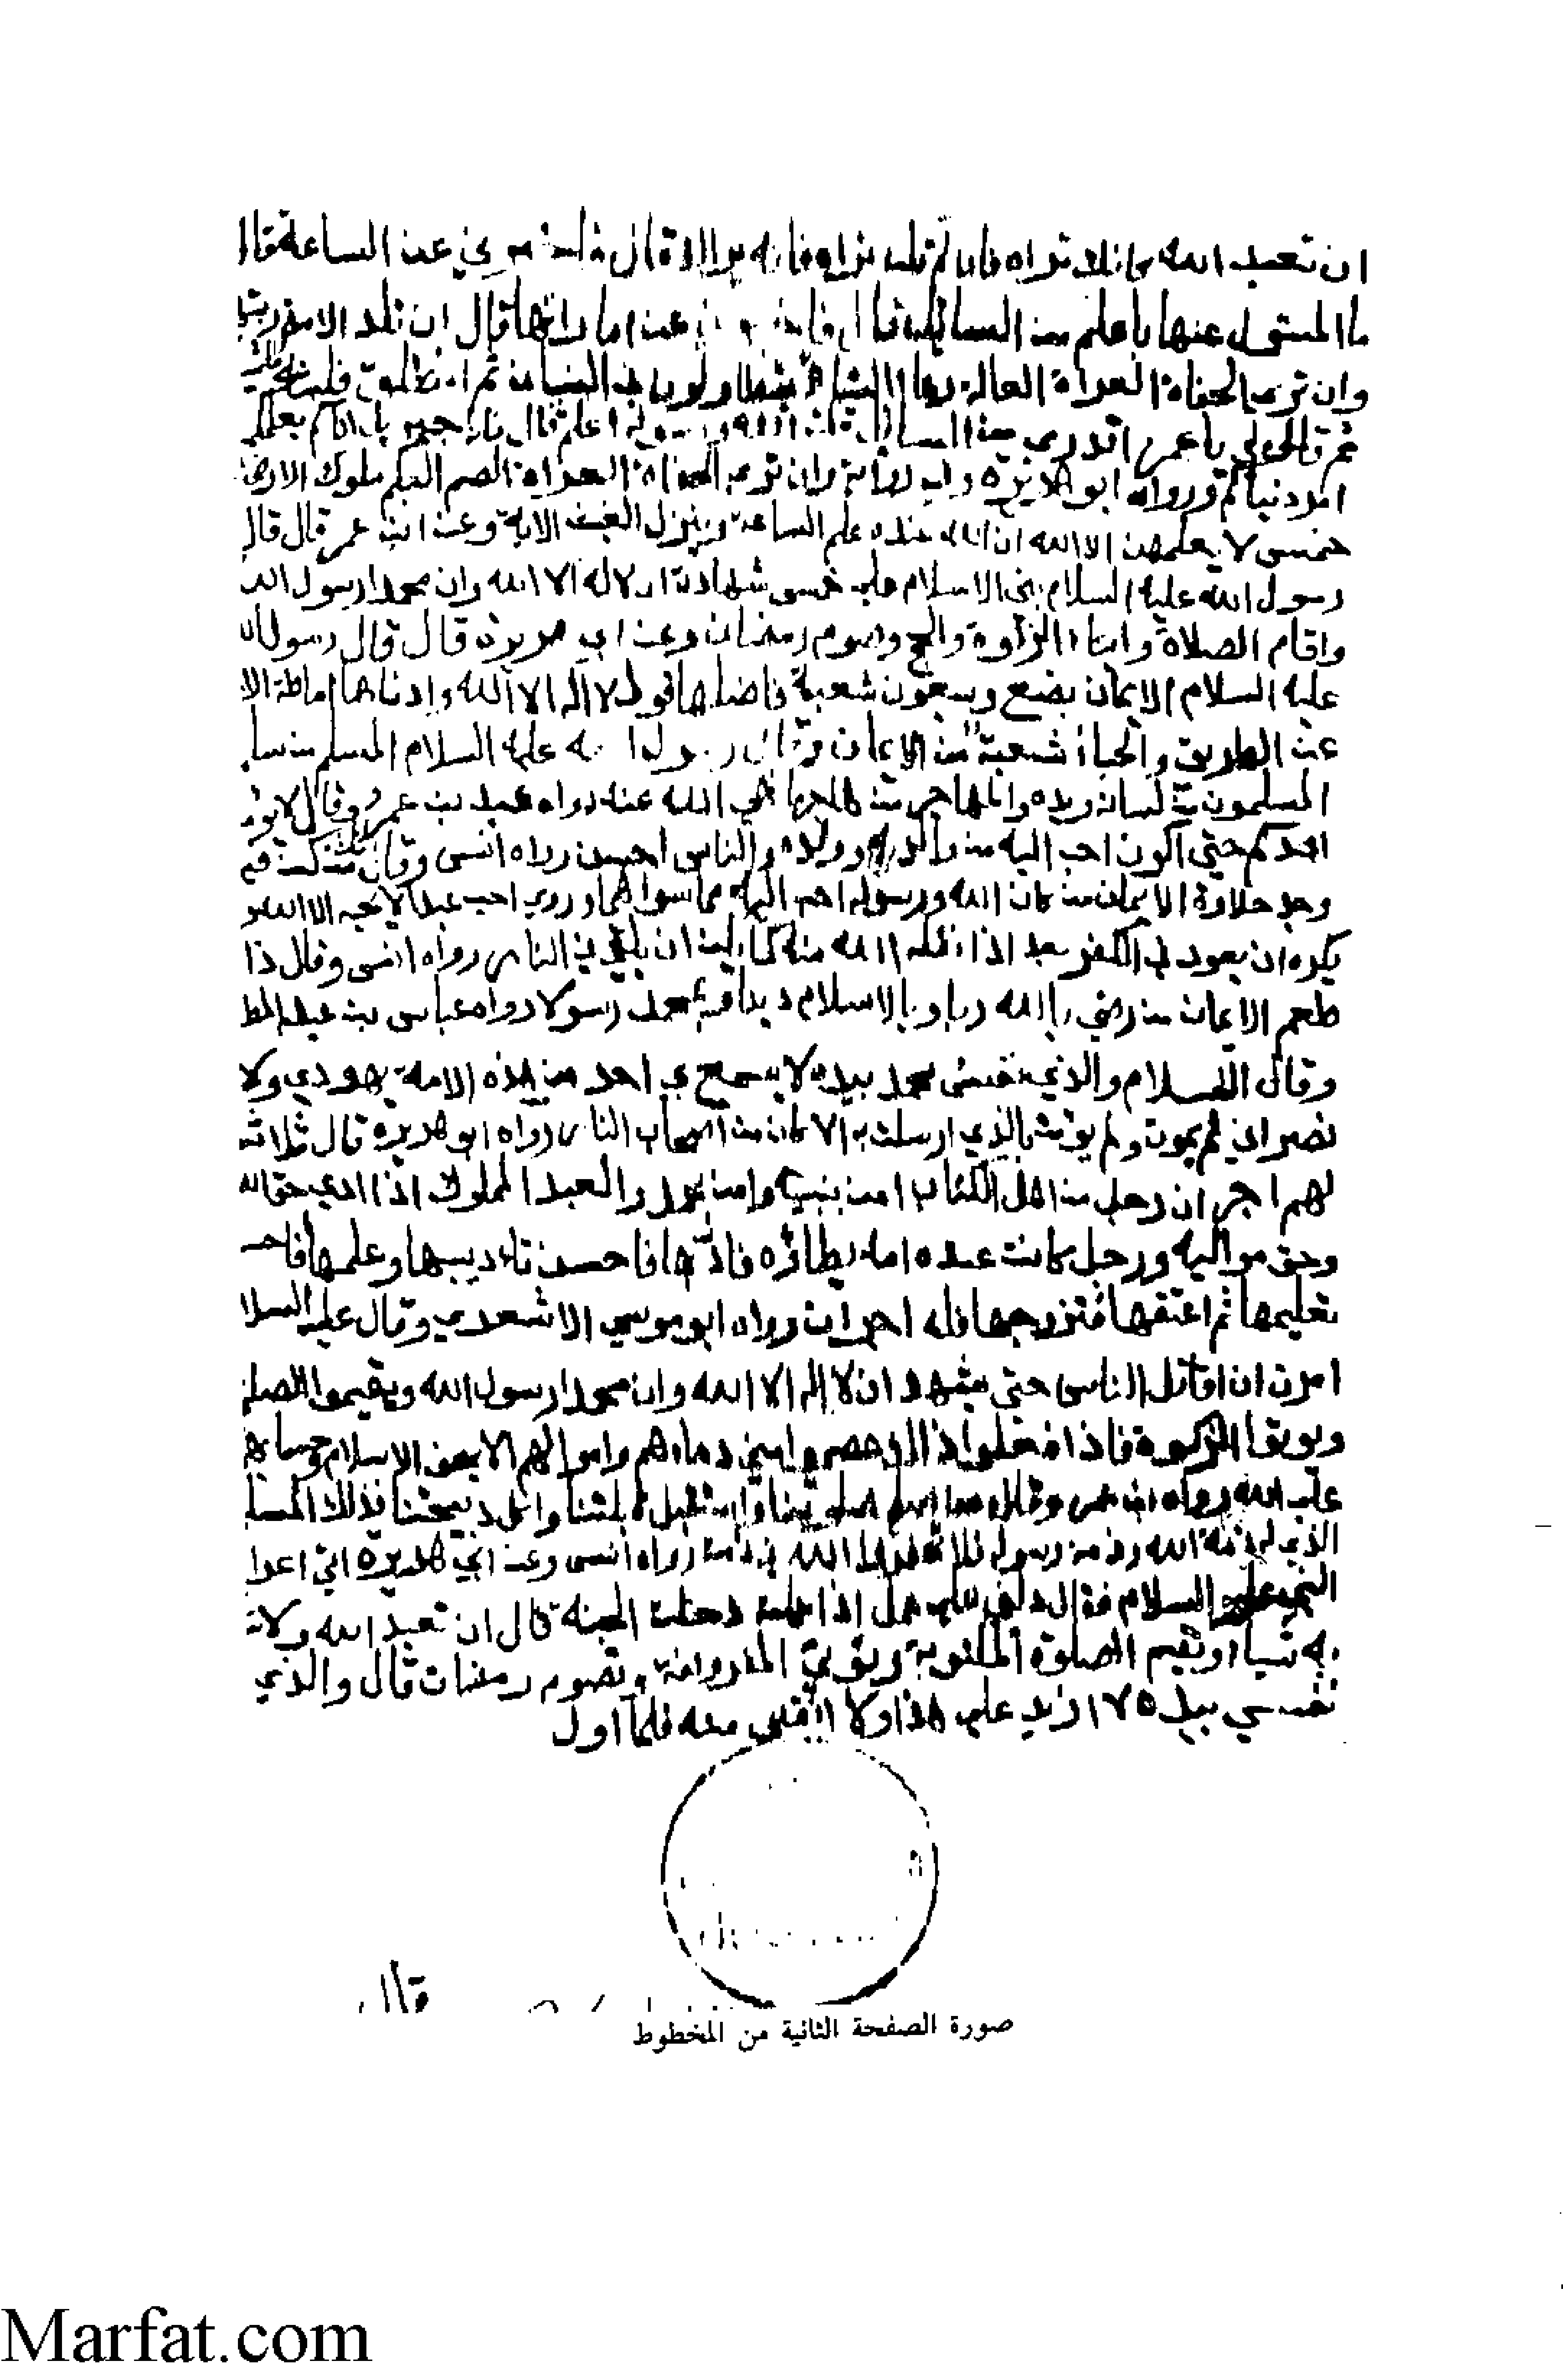 ان تعبد الله كانك تراه فان لم تكن تراه فانه يراك قال فاخبرني عن الساعة قال
ما المسئول عنها باعلم من السايل قال فاخبرني عن اماراتها قال ان تلد الامة ربتها
وان ترى الحفاة العراة العالة رعا الشاء يتطاولون في البنيان ثم انطلق فلبثت مليا
ثم قال لي يا عمر اتدري من السايل قلت الله ورسوله اعلم قال فانه جبريل اتاكم يعلمكم
امر دينكم ورواه ابو هريرة وفي رواية وان ترى الحفاة العراة الصم البكم ملوك الارض
خمس لا يعلمهن الا الله ان الله عنده علم الساعة وينزل الغيث الاية وعن ابن عمر قال قال
رسول الله عليه السلام بني الاسلام على خمس شهادة ان لا اله الا الله وان محمدا رسول الله
واقام الصلاة وايتاء الزكوة والحج وصوم رمضان وعن ابي هريرة قال قال رسول الله
عليه السلام الايمان بضع وسبعون شعبة فافضلها قول لا اله الا الله وادناها اماطة الا
عن الطريق والحياء شعبة من الايمان وقال رسول الله عليه السلام المسلم من سلم
المسلمون من لسانه ويده والمهاجر من هاجر ما نهى الله عنه رواه عبد بن عمر وقال لا يومن
احدكم حتى اكون احب اليه من والده وولده والناس اجمعين رواه انس وقال ثلث من كن فيه
وجد حلاوة الايمان من كان الله ورسوله احب اليه مما سواهما وروي احب عبدا لا يحبه الا الله و
يكره ان يعود في الكفر بعد اذ انقذه الله منه كما يكره ان يلقى في النار رواه انس وقال ذا
طعم الايمان من رضي بالله ربا وبالاسلام دينا وبمحمد رسولا رواه عباس بن عبد المط
وقال السلام والذي نفس محمد بيده لا يسمع بي احد من هذه الامة يهودي ولا
نصراني ثم يموت ولم يومن بالذي ارسلت به الا كان من اصحاب النار رواه ابو هريرة قال ثلاثة
لهم اجران رجل من اهل الكتاب امن بنبيه وامن بمحمد والعبد المملوك اذا ادي حق الله
وحق مواليه ورجل كانت عنده امة يطاؤه فادبها فاحسن تاديبها وعلمها فاحسـ
تعليمها ثم اعتقها فتزوجها فله اجران رواه ابو موسي الاشعري وقال عليه السلا
امرت ان اقاتل الناس حتى يشهد ان لا اله الا الله وان محمدا رسول الله ويقيموا الصلوة
ويوتوا الزكوة فاذا فعلوا ذالك عصموا مني دماءهم واموالهم الا بحق الاسلام وحسابهم
على الله رواه ابن عمر وقال من صلى صلوتنا واستقبل قبلتنا واكل ذبيحتنا فذلك المسلم
الذي له ذمة الله وذمة رسوله فلا تخفروا الله في ذمته رواه انس وعن ابي هريرة اتى اعرا
النبي عليه السلام فقال دلني على عمل اذا عملته دخلت الجنة قال ان تعبد الله ولا تشـ
به شيا وتقيم الصلوة المكتوبة وتؤتي المفروضة وتصوم رمضان قال والذي
نفسي بيده لا ازيد على هذا ولا انقص منه فلما اول
قال
صورة الصفحة الثانية من المخطوط
Marfat.com